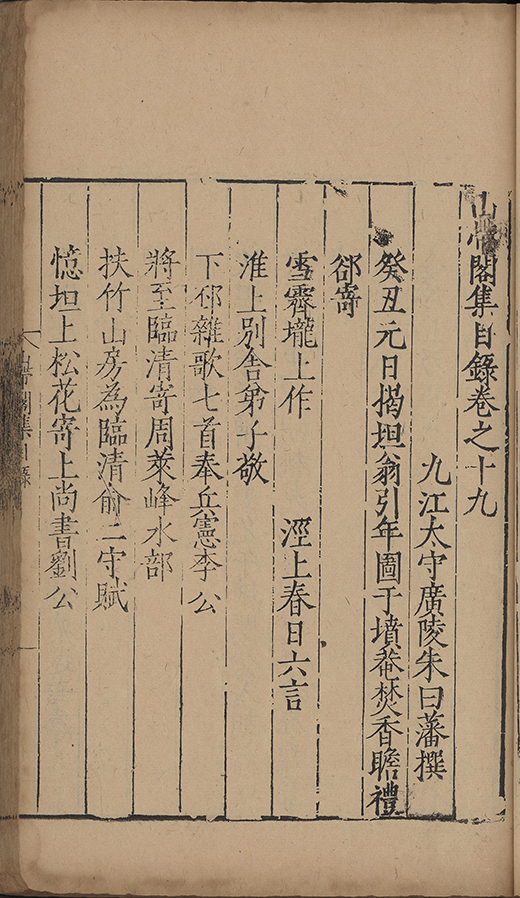 山帶閣集目錄卷之十九
九江太守廣陵朱曰藩撰
癸丑元日揭坦翁引年圖于墳菴焚香瞻禮
郤寄
雪霽壠上作 涇上春日六言
淮上別舍弟子敬
下邳雜歌七首奉兵憲李公
將至臨清寄周萊峰水部
扶竹山房為臨清俞二守賦
憶坦上松花寄上尚書劉公
山帶閣集目錄